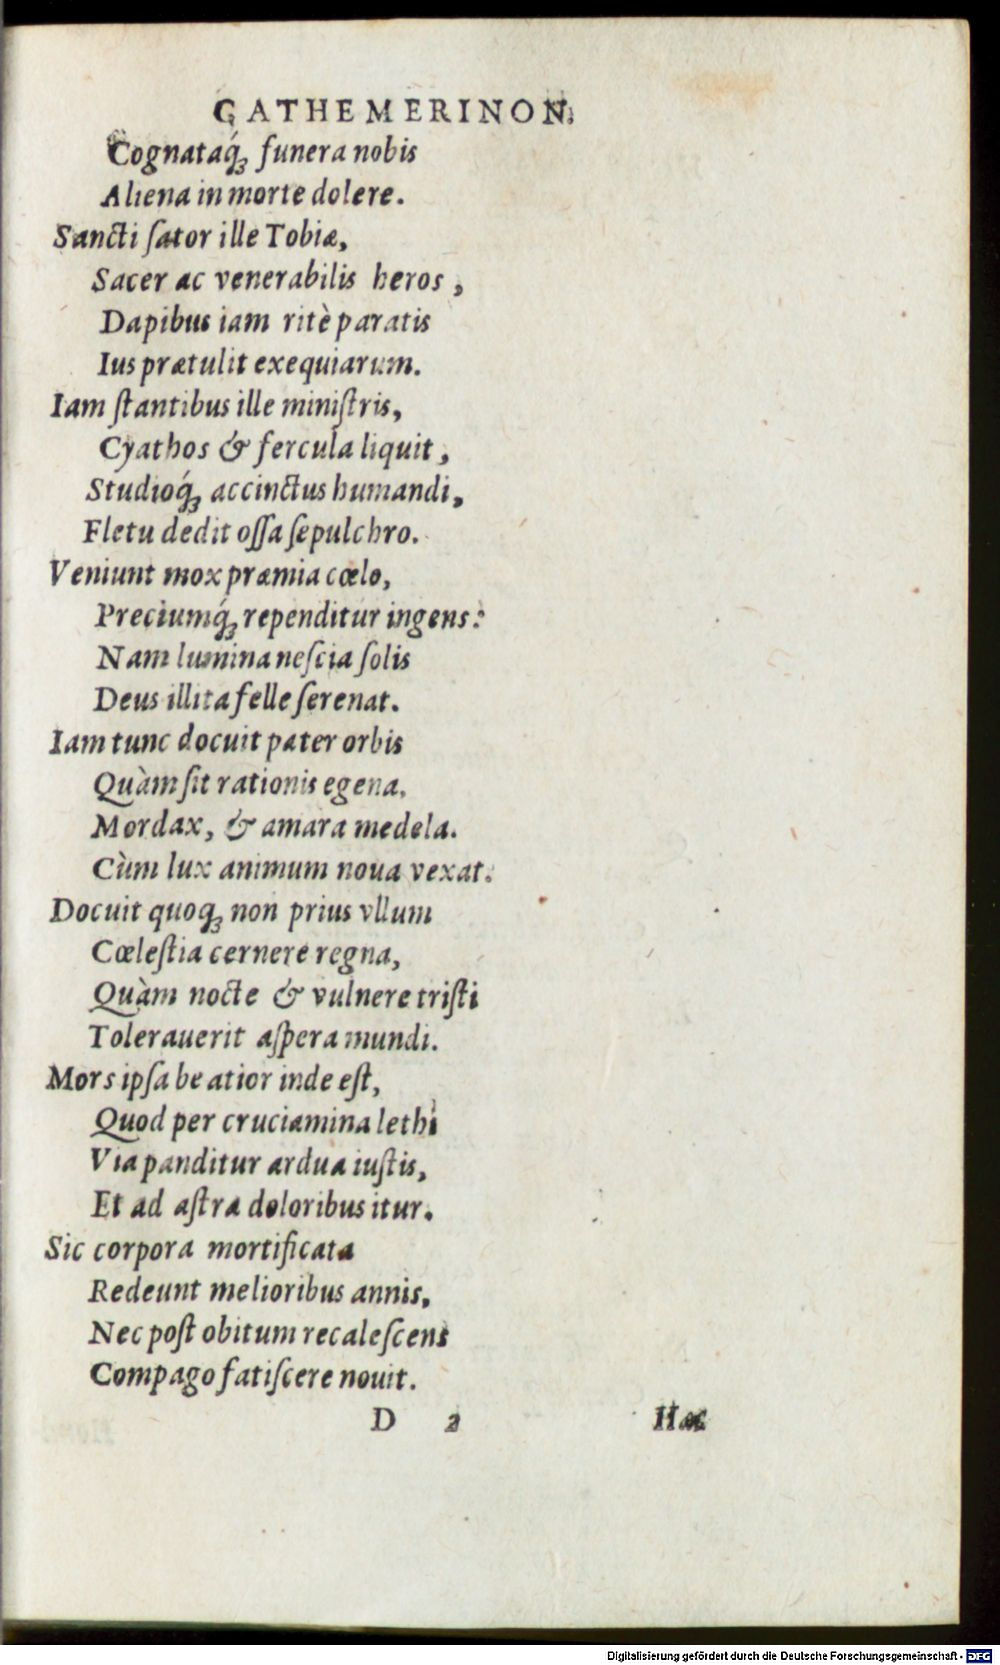 CATHEMERINON.
Cognataq́; funera nobis
Aliena in morte dolere.
Sancti ſator ille Tobiæ,
Sacer ac venerabilis heros,
Dapibus iam ritè paratis
Ius prætulit exequiarum.
Iam ſtantibus ille miniſtris,
Cyathos & fercula liquit,
Studioq́; accinctus humandi,
Fletu dedit oſſa ſepulchro.
Veniunt mox præmia cœlo,
Preciumq́; rependitur ingens:
Nam lumina neſcia ſolis
Deus illita felle ſerenat.
Iam tunc docuit pater orbis
Quàm ſit rationis egena,
Mordax, & amara medela.
Cùm lux animum noua vexat.
Docuit quoq; non prius vllum
Cœleſtia cernere regna,
Quàm nocte & vulnere triſti
Tolerauerit aſpera mundi.
Mors ipſa beatior inde eſt,
Quod per cruciamina lethi
Via panditur ardua iuſtis,
Et ad aſtra doloribus itur.
Sic corpora mortificata
Redeunt melioribus annis,
Nec poſt obitum recaleſcens
Compago fatiſcere nouit.
D 2 Hæc
Digitalisierung gefördert durch die Deutsche Forschungsgemeinschaft - DFG